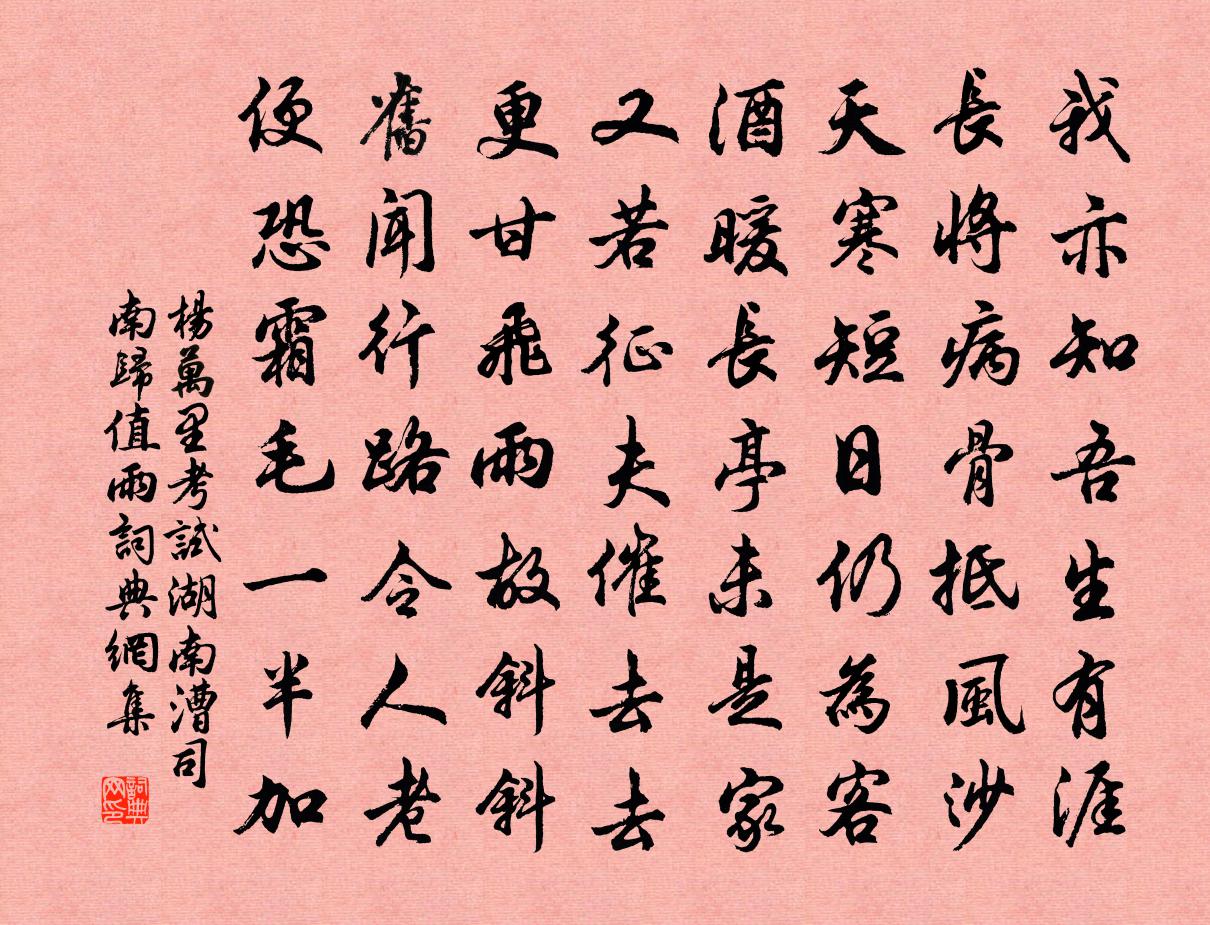 我亦知吾生有涯
長將病骨抵風沙
天寒短日仍為客
酒暖長亭未是家
又若征夫催去去
更甘飛雨故斜斜
舊聞行路令人老
便恐霜毛一半加
楊萬里考試湖南漕司
南歸值雨詞典網集
詞典
网印